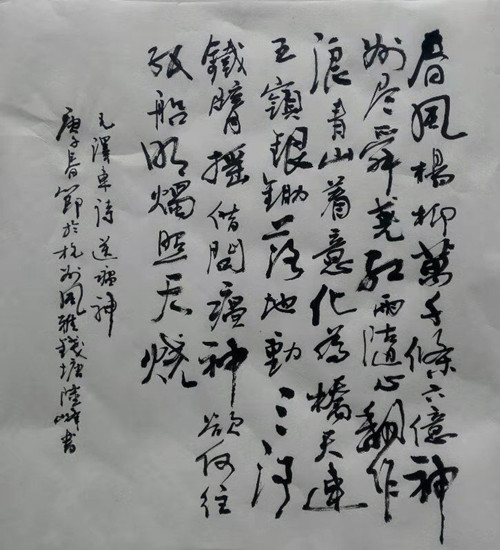 春風楊柳萬千條六億神
州尽舜堯红雨随心翻作
浪青山着意化為橋天連
五嶺銀鋤落地動三河
鐵臂摇借問瘟神欲何往
纸船明燭照天燒
毛澤東詩送瘟神
庚子春節於杭州风雅錢塘陸峰書